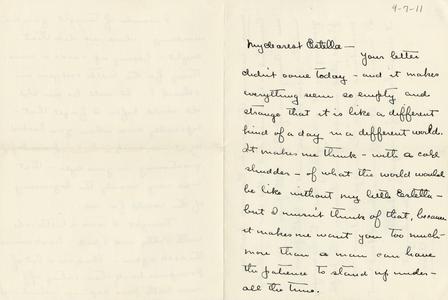 4-7-11
My dearest Estella —
Your letter
didn't come today - and it makes
everything seem so empty and
strange that it is like a different
kind of a day in a different world.
It makes me think - with a cold
shudder - of what the world would
be like without my little Estella -
but I musn't think of that, because
it makes me want you too much -
more than a man can have
the patience to stand up under -
all the time.